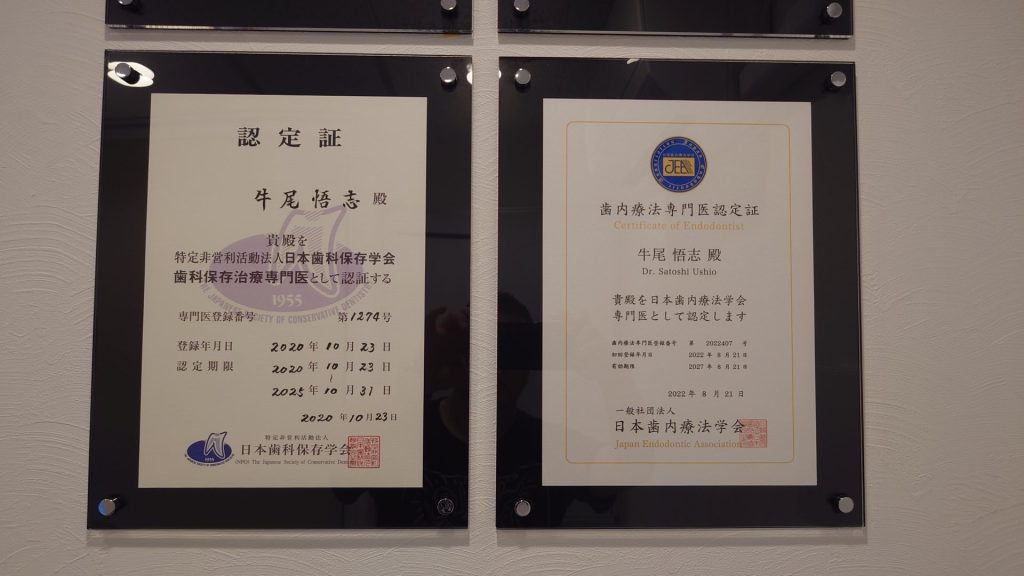 認定証
牛尾悟志 殿
貴殿を
特定非営利活動法人日本歯科保存学会
歯科保存治療専門医として認証する
1955
THE JAPANESE SOCIETY OF CONSERVATIVE DENTISTRY
専門医登録番号 第1274号
登録年月日 2020年10月23日
認定期限 2020年10月23日
~
2025年10月31日
2020年10月23日
特定非営利活動法人
日本歯科保存学会
(NPO) The Japanese Society of Conservative
1955
JEA
歯内療法専門医認定証
Certificate of Endodontist
牛尾 悟志 殿
Dr. Satoshi Ushio
貴殿を日本歯内療法学会
専門医として認定します
歯内療法専門医登録番号 第 2022407 号
初回登録年月日 2022年 8月21日
有効期限 2027年 8月21日
2022年 8月21日
一般社団法人
日本歯内療法学会
Japan Endodontic Association